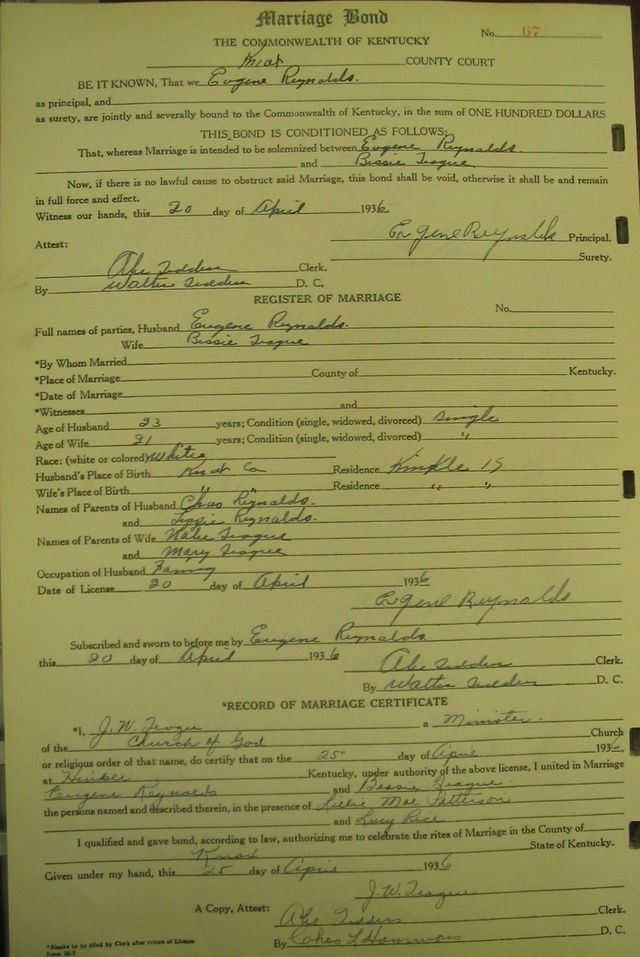 Marriage Bond
No. 67
THE COMMONWEALTH OF KENTUCKY
Knox COUNTY COURT
BE IT KNOWN, That we Eugene Reynolds.
as principal, and
as surety, are jointly and severally bound to the Commonwealth of Kentucky, in the sum of ONE HUNDRED DOLLARS
THIS BOND IS CONDITIONED AS FOLLOWS:
That, whereas Marriage is intended to be solemnized between Eugene Reynolds.
and Bissie Teague
Now, if there is no lawful cause to obstruct said Marriage, this bond shall be void, otherwise it shall be and remain
in full force and effect.
Witness our hands, this 20 day of April 1936
Eugene Reynolds Principal.
Attest:
Surety.
Abe Tedders Clerk.
By Walter Tedders D. C.
REGISTER OF MARRIAGE
No.
Full names of parties, Husband Eugene Reynolds.
Wife Bissie Teague
*By Whom Married
*Place of Marriage County of Kentucky.
*Date of Marriage
*Witnesses and
Age of Husband 23 years; Condition (single, widowed, divorced) Single
Age of Wife 21 years; Condition (single, widowed, divorced) "
Race: (white or colored) White
Husband's Place of Birth Knox Co Residence Hinkle Ky
Wife's Place of Birth " " Residence " "
Names of Parents of Husband Chas Reynolds.
and Reynolds.
Names of Parents of Wife Teague
and Mary Teague
Occupation of Husband Farming
Date of License 20 day of April 1936
Eugene Reynolds
Subscribed and sworn to before me by Eugene Reynolds
this 20 day of April 1936
Abe Tedders Clerk.
By Walter Tedders D. C.
*RECORD OF MARRIAGE CERTIFICATE
*I, J. W. Teague a Minister.
of the Church of God Church
or religious order of that name, do certify that on the 25" day of April 1936
at Hinkle Kentucky, under authority of the above license, I united in Marriage
Eugene Reynolds and Bessie Teague
the persons named and described therein, in the presence of Lillie Mae Patterson
and Lucy Rice
I qualified and gave bond, according to law, authorizing me to celebrate the rites of Marriage in the County of
Knox State of Kentucky.
Given under my hand, this 25 day of April 1936
J. W. Teague
A Copy, Attest: Abe Tedders Clerk.
By Chas L Hammons D. C.
*Blanks to be filled by Clerk after return of License
Form M-7